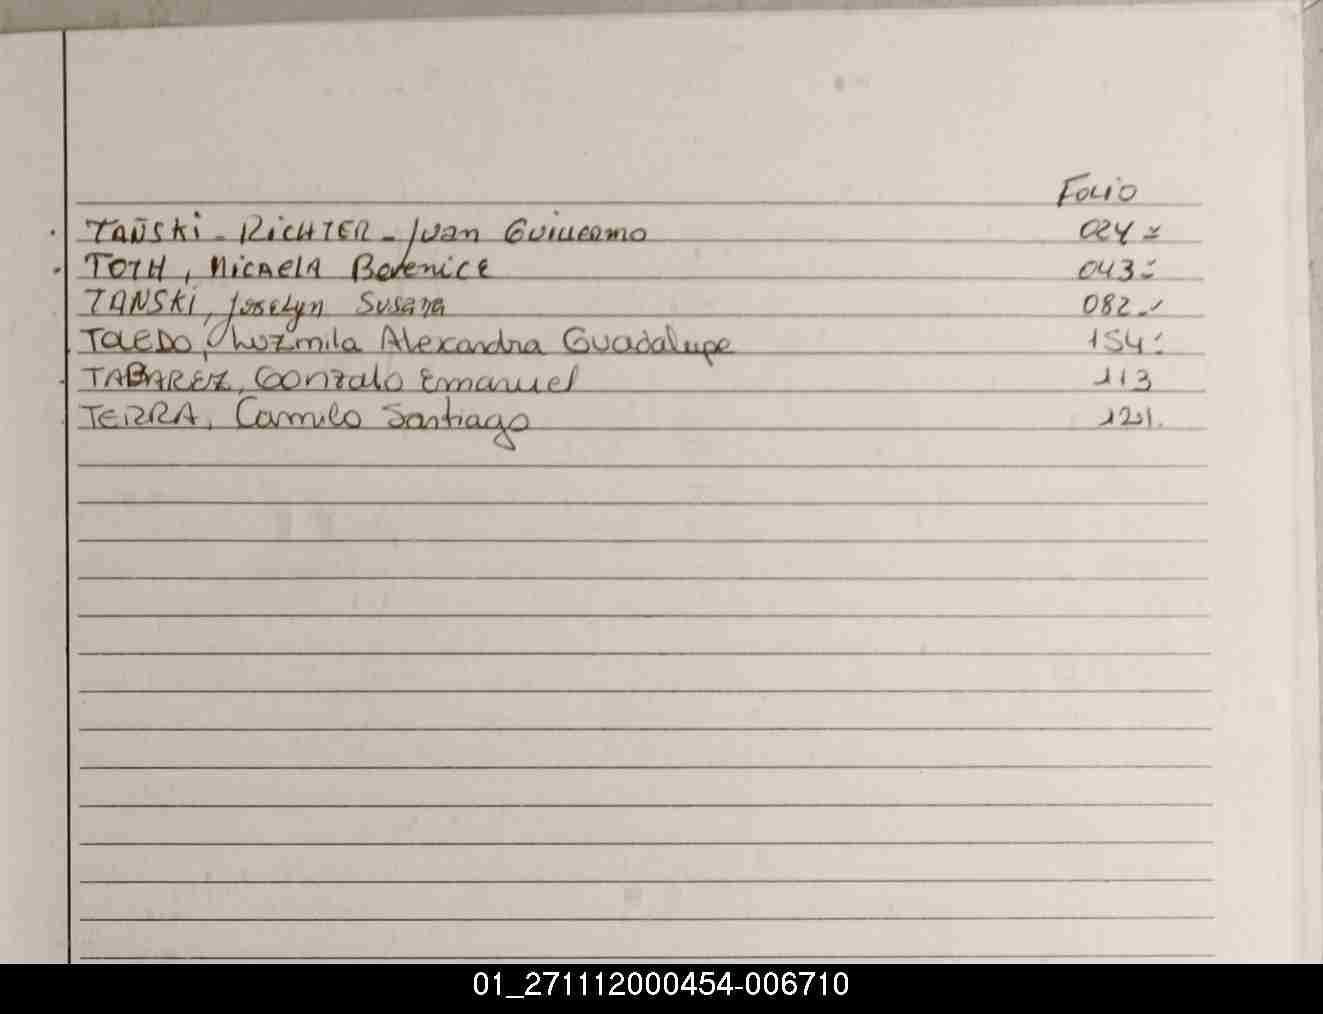 Folio
TAÑSKi - RiCHTER - Juan Guillermo 024
TOTH, MICAElA Berenice 043
TANSKi, Joselyn Susana 082
TOLEDO, Luzmila Alexandra Guadalupe 154
TABAREZ, Gonzalo Emanuel 113
TERRA, Camilo Santiago 121.
01_271112000454-006710